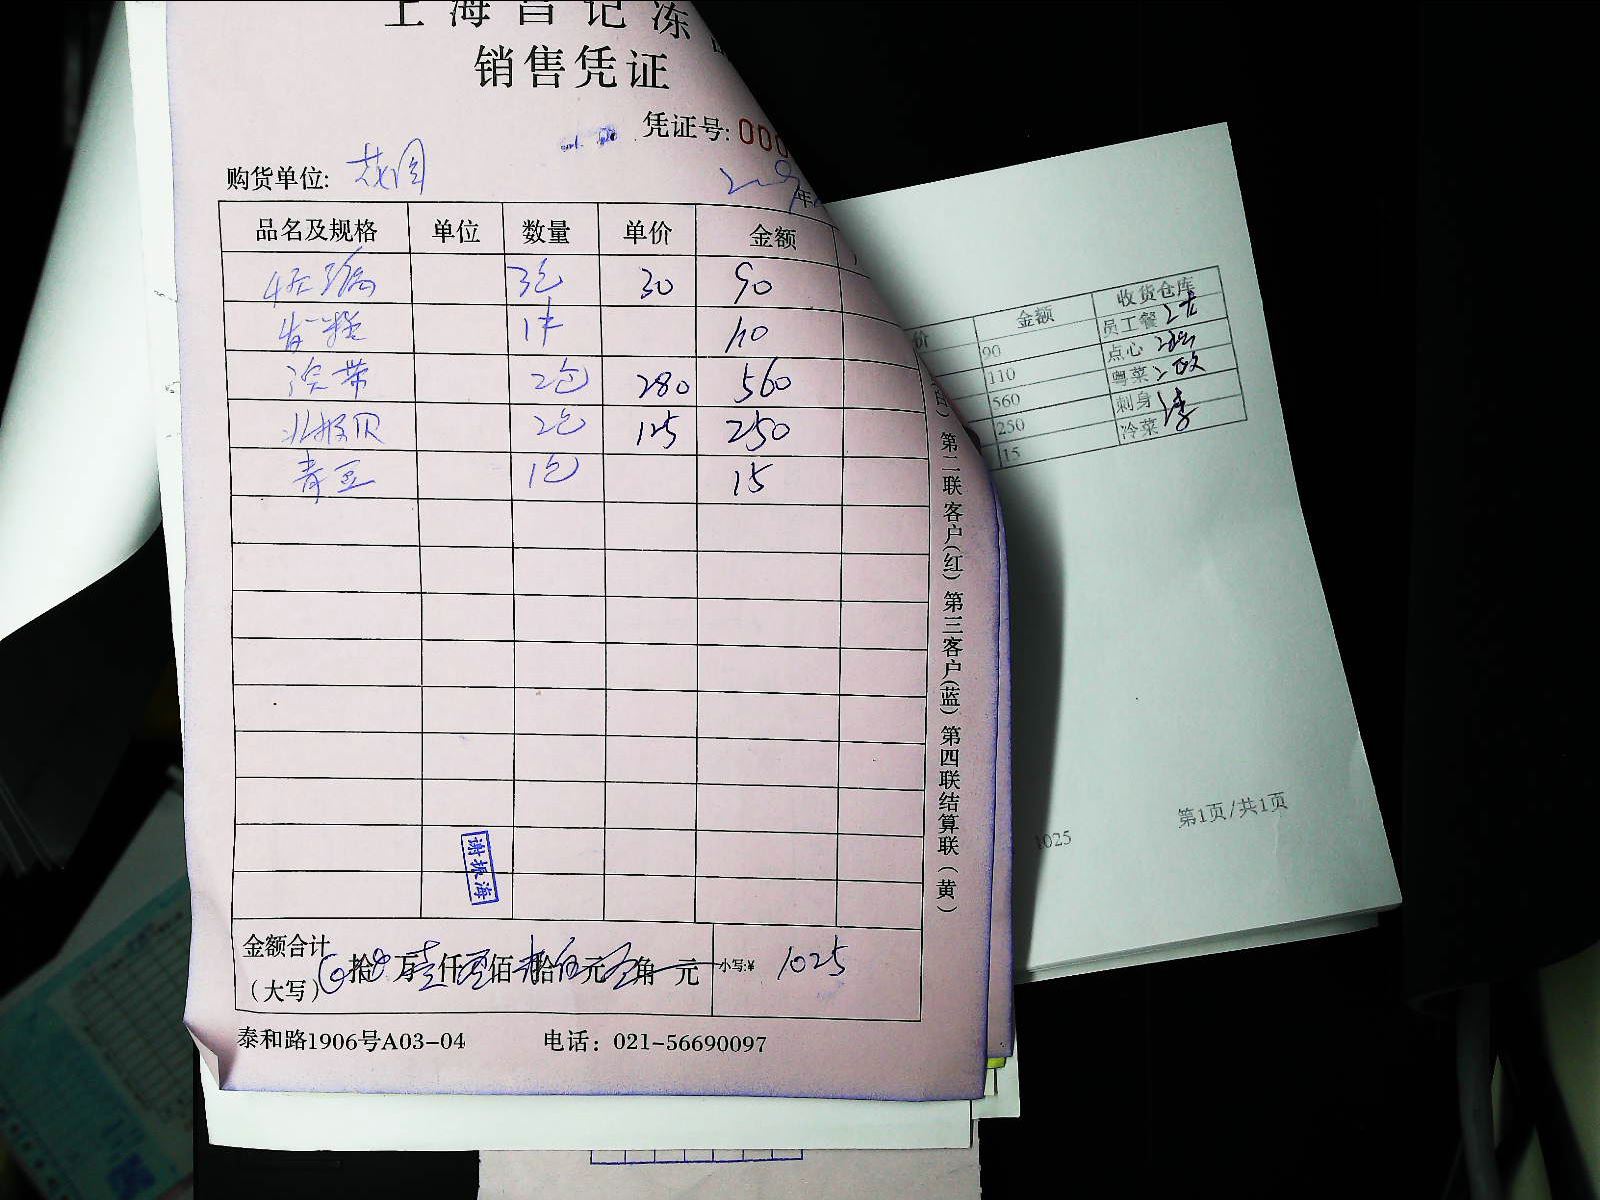 上海吕记冻
销售凭证
凭证号: 000
购货单位: 茂园
年
品名及规格 单位 数量 单价 金额
3包 30 90
1件 110
鲜带 2包 280 560
北极贝 2包 125 250
青豆 1包 15
第二联客户(红) 第三客户(蓝) 第四联结算联(黄)
谢振海
金额合计
(大写) 拾 万壹仟零佰 拾伍元 角 元 小写:¥ 1025
泰和路1906号A03-04 电话: 021-56690097
价 金额 收货仓库
90 员工餐
110 点心
560 粤菜
250 刺身
15 冷菜
1025
第1页/共1页